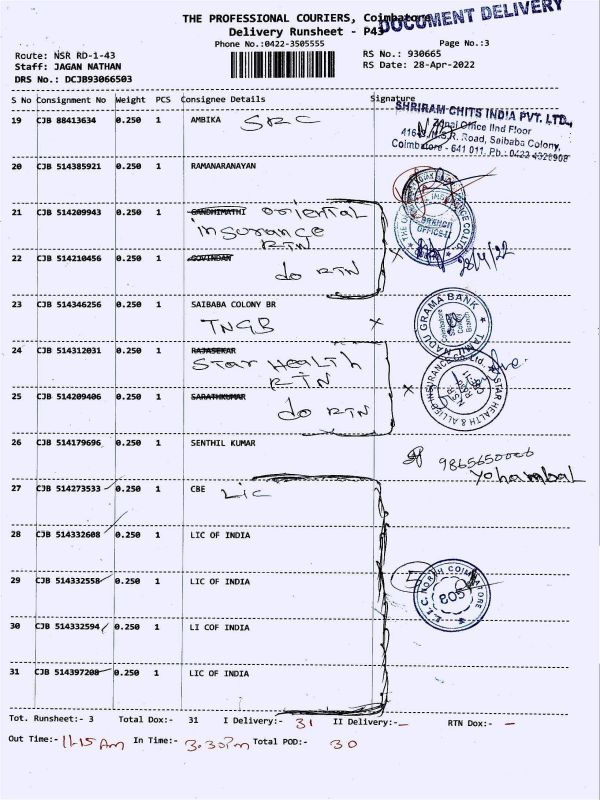 THE PROFESSIONAL COURIERS, Coimbatore
DOCUMENT DELIVERY
Delivery Runsheet - P43
Phone No.:0422-3505555
Page No.:3
Route: NSR RD-1-43
RS No.: 930665
Staff: JAGAN NATHAN
RS Date: 28-Apr-2022
DRS No.: DCJB93066503
S No Consignment No Weight PCS Consignee Details Signature
SHRIRAM CHITS INDIA PVT. LTD.,
Zonal Office IInd Floor
N.S.R. Road, Saibaba Colony,
Coimbatore - 641 011. Ph.: 0422 4326908
19 CJB 88413634 0.250 1 AMBIKA SRC
20 CJB 514385921 0.250 1 RAMANARANAYAN
21 CJB 514209943 0.250 1 GANDHIMATHI oriental
insurance
RTN
BRANCH
OFFICE-II
22 CJB 514210456 0.250 1 GOVINDAN
do RTN
28/4/22
23 CJB 514346256 0.250 1 SAIBABA COLONY BR
TNGB
TAMIL NADU GRAMA BANK
24 CJB 514312031 0.250 1 RAJASEKAR
Star Health
RTN
STAR HEALTH & ALLIED INSURANCE CO. Ltd.
25 CJB 514209406 0.250 1 SARATHKUMAR
do RTN
26 CJB 514179696 0.250 1 SENTHIL KUMAR
Yohambal
27 CJB 514273533 0.250 1 CBE LIC
28 CJB 514332608 0.250 1 LIC OF INDIA
29 CJB 514332558 0.250 1 LIC OF INDIA
5
L.I.C. NORTH COIMBATORE
903
30 CJB 514332594 0.250 1 LI COF INDIA
31 CJB 514397208 0.250 1 LIC OF INDIA
Tot. Runsheet:- 3 Total Dox:- 31 I Delivery:- 31 II Delivery:- - RTN Dox:- -
Out Time:- 11.15 Am In Time:- 3.30 Pm Total POD:- 30